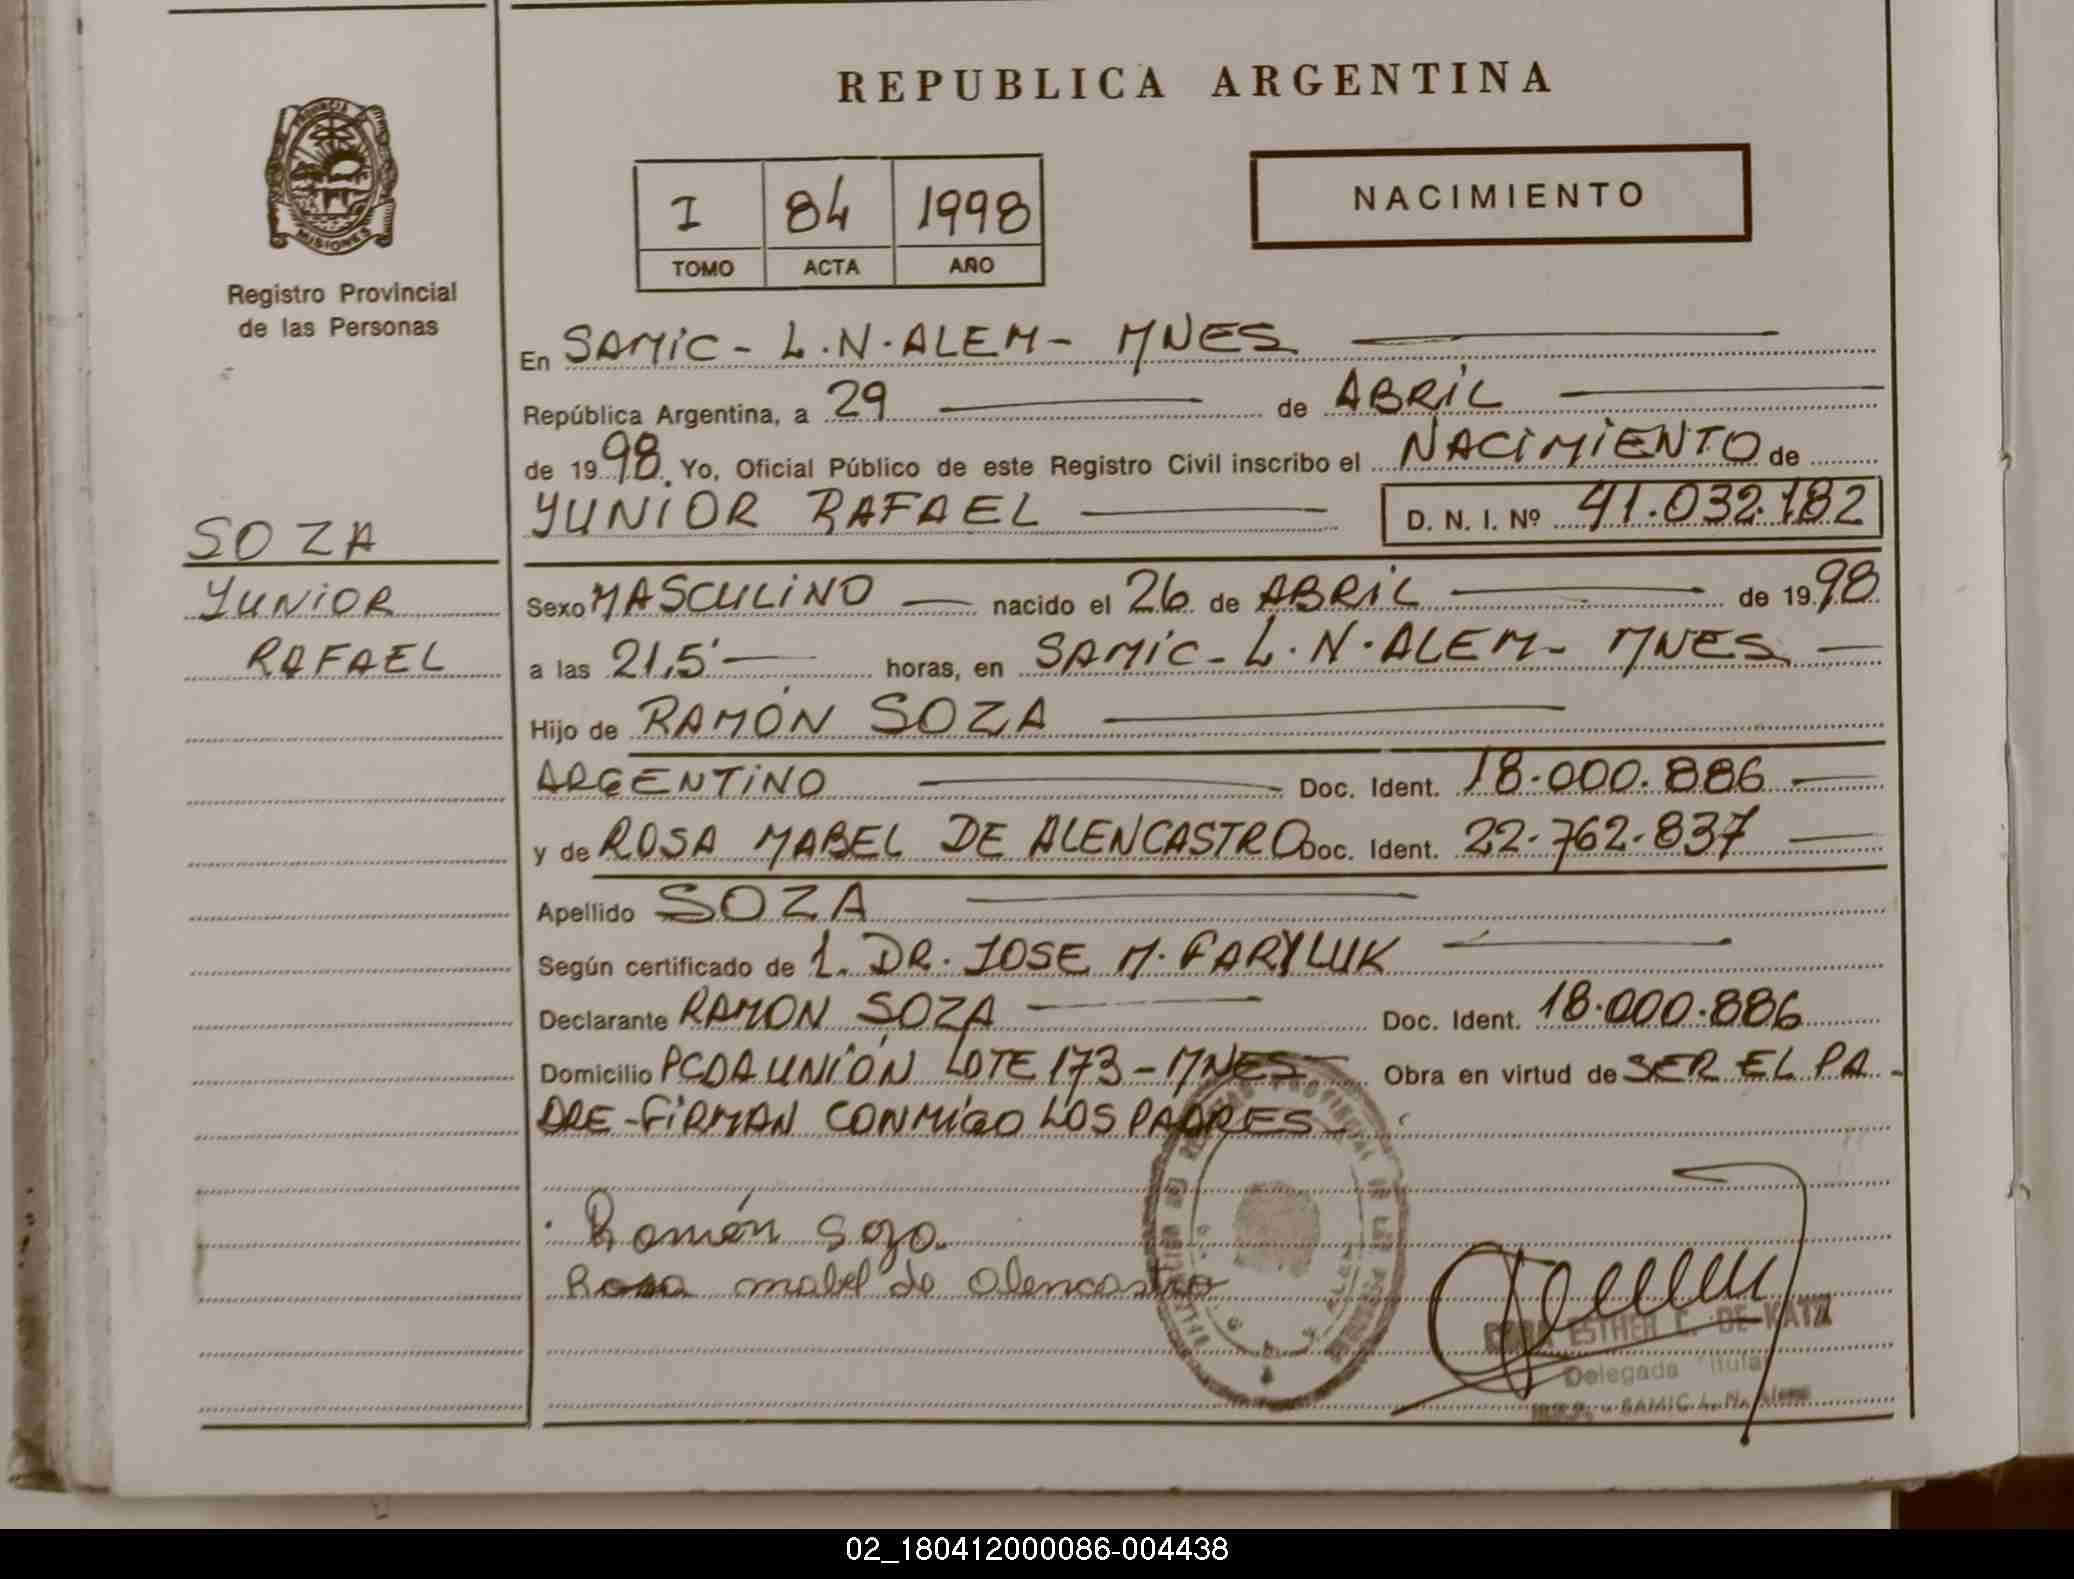 REPUBLICA ARGENTINA
PROVINCIA
MISIONES
Registro Provincial
de las Personas
I 84 1998
TOMO ACTA AÑO
NACIMIENTO
En SAMIC - L.N.ALEM - MNES
República Argentina, a 29 de ABRIL
de 1998. Yo, Oficial Público de este Registro Civil inscribo el NACIMIENTO de
YUNIOR RAFAEL D. N. I. Nº 41.032.182
SOZA
YUNIOR
RAFAEL
Sexo MASCULINO nacido el 26 de ABRIL de 1998
a las 21,5' horas, en SAMIC - L.N.ALEM - MNES
Hijo de RAMÓN SOZA
ARGENTINO Doc. Ident. 18.000.886
y de ROSA MABEL DE ALENCASTRO Doc. Ident. 22.762.837
Apellido SOZA
Según certificado de 1. DR. JOSE M. FARYLUK
Declarante RAMON SOZA Doc. Ident. 18.000.886
Domicilio PCDA UNIÓN LOTE 173 - MNES Obra en virtud de SER EL PA-
DRE - FIRMAN CONMIGO LOS PADRES
Ramón Soza
Rosa mabel de Alencastro
ESTHER C. DE KATZ
Delegada Titular
SAMIC L. N. Alem
02_180412000086-004438